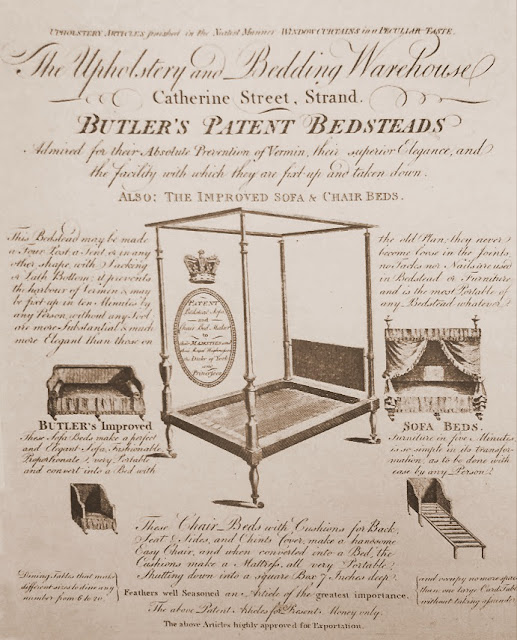 UPHOLSTERY ARTICLES finished in the Neatest Manner WINDOW CURTAINS in a PECULIAR TASTE.
The Upholstery and Bedding Warehouse
Catherine Street, Strand.
BUTLER'S PATENT BEDSTEADS
Admired for their Absolute Prevention of Vermin, their superior Elegance, and
the facility with which they are fixt up and taken down.
ALSO: THE IMPROVED SOFA & CHAIR BEDS.
This Bedstead may be made
a Four Post a Tent or in any
other shape, with Sacking
or Lath Bottom; it prevents
the harbour of Vermin & may
be fixt up in ten Minutes by
any Person, without any Tool,
are more Substantial & much
more Elegant than those on
the old Plan; they never
become loose in the Joints,
no Tacks nor Nails are used
in Bedstead or Furniture
and is the most Portable of
any Bedstead whatever
PATENT
Bedstead Sofa
and
Chair Bed Maker
to
their MAJESTIES and
their Royal Highnesses
the Duke of York
and
Princesses
BUTLER'S Improved
These Sofa Beds make a perfect
and Elegant Sofa, Fashionable
Proportionate & very Portable
and convert into a Bed with
SOFA BEDS.
Furniture in five Minutes,
is so simple in its transfor-
mation, as to be done with
ease by any Person.
These Chair Beds with Cushions for Back,
Seat & Sides, and Chints Cover, make a handsome
Easy Chair, and when converted into a Bed, the
Cushions make a Mattress, all very Portable,
Shutting down into a square Box 7 Inches deep
Dining Tables that make
different sizes to dine any
number from 6 to 20.
and occupy no more space
than one large Card Table
without taking asunder.
Feathers well Seasoned an Article of the greatest importance.
The above Patent Articles for Present Money only.
The above Articles highly approved for Exportation.